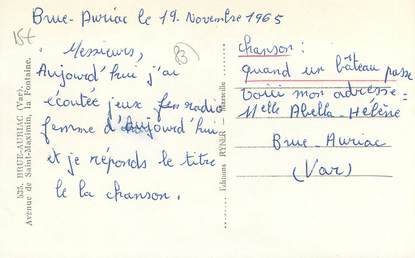 Brue-Auriac le 19. Novembre 1965
15f
Messieurs,
Aujourd'hui j'ai
écoutée jeux
radio
femme d'aujourd'hui
et je réponds le titre
le la chanson.
chanson:
quand un bâteau passe
voiii mon adresse=
Melle Abella-Hélène
Brue-Auriac
(Var)
535. BRUE-AURIAC (Var).
Avenue de Saint-Maximin, la Fontaine.
Editions RYNER Marseille